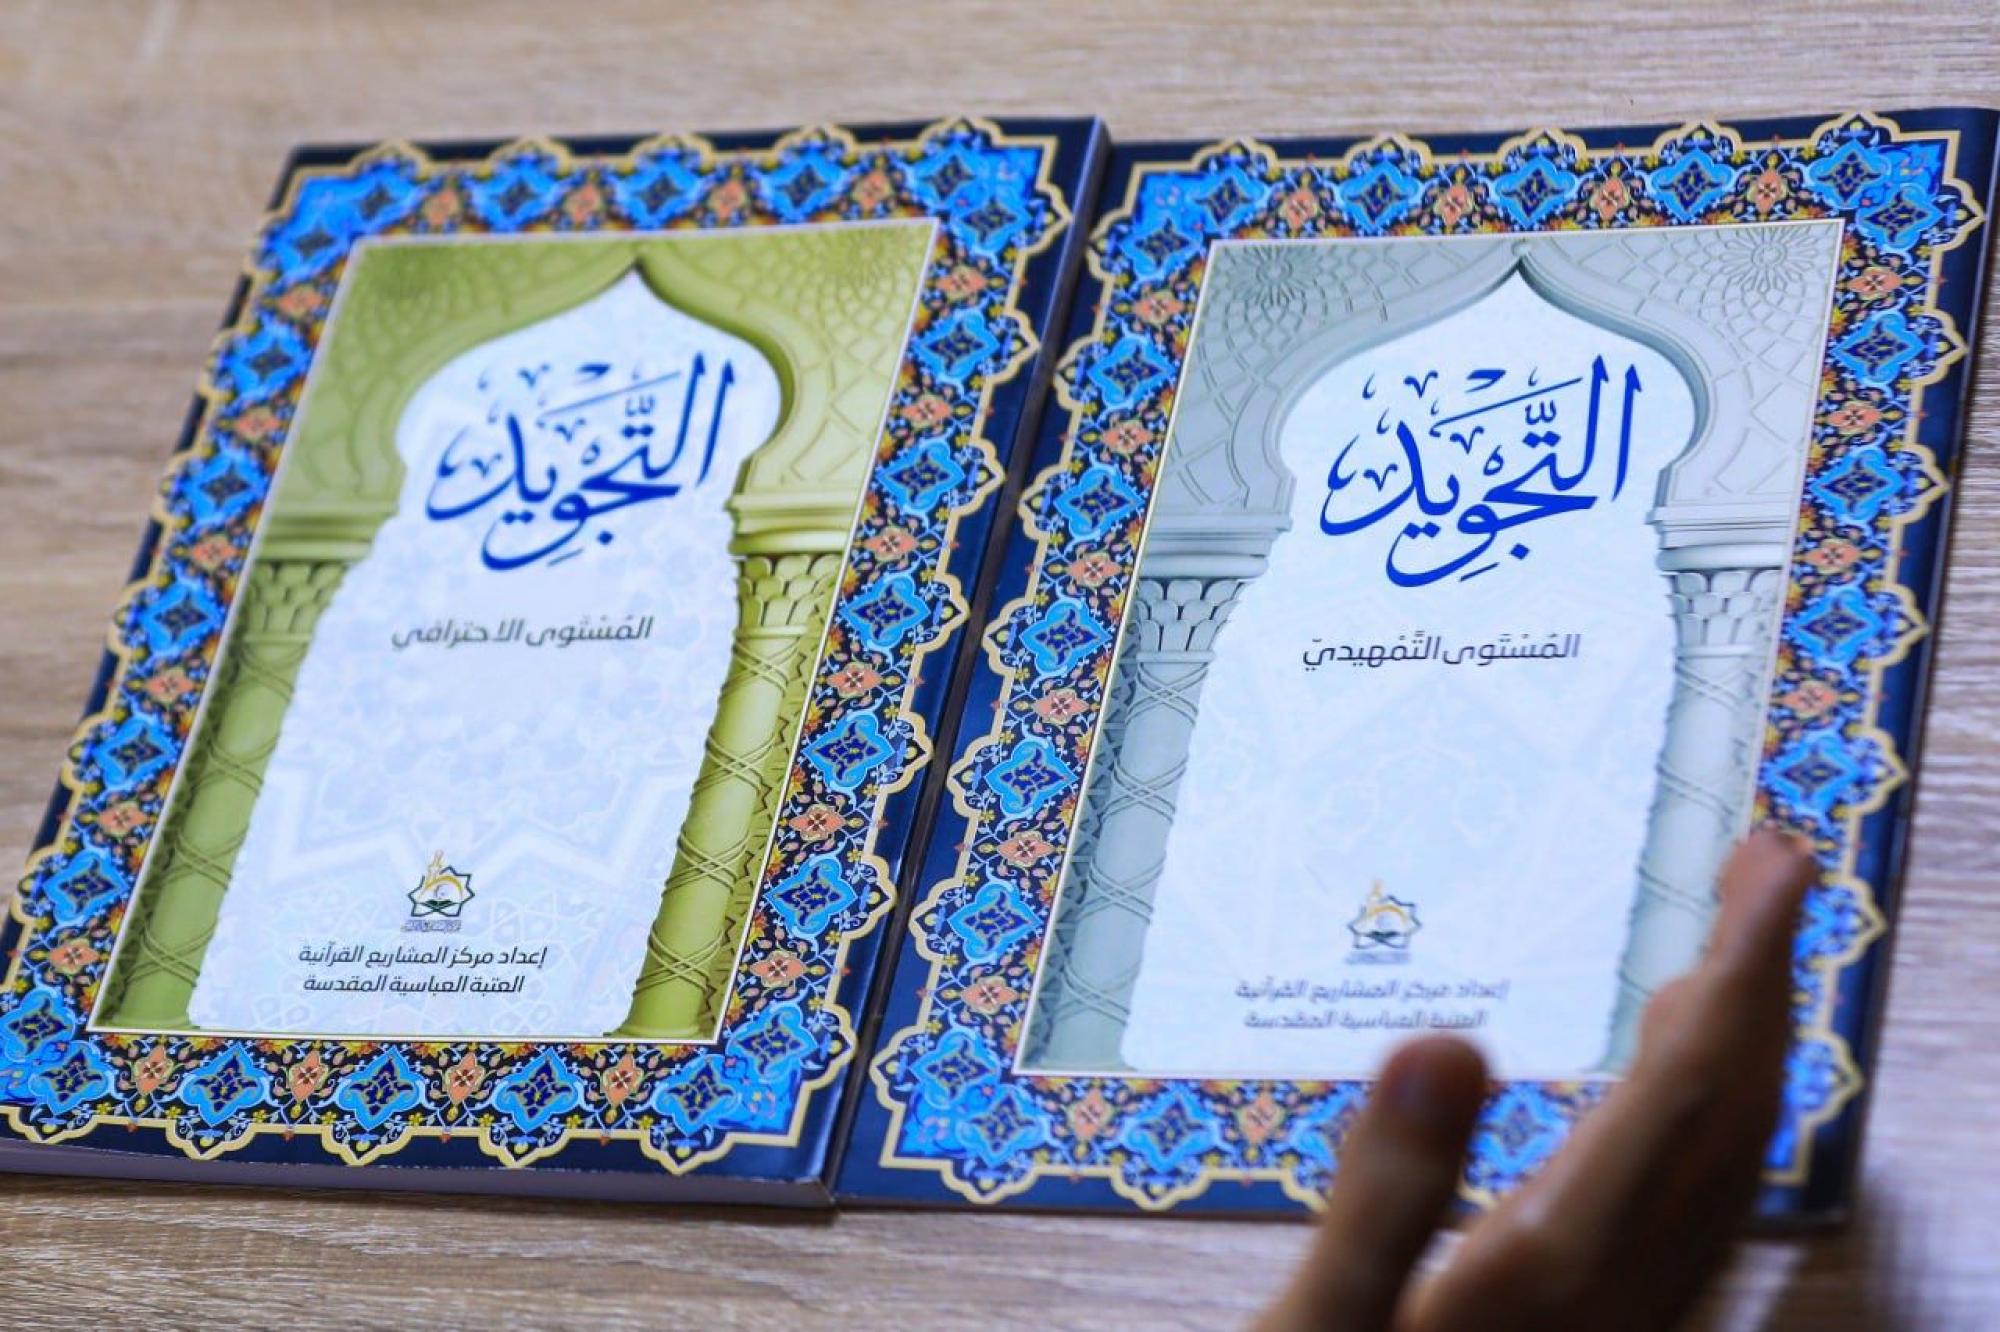 التَّجْوِيد
المُسْتَوى التَّمْهيديّ
إعداد مركز المشاريع القرآنية
العتبة العباسية المقدسة
التَّجْوِيد
المُسْتَوى الاحترافي
إعداد مركز المشاريع القرآنية
العتبة العباسية المقدسة